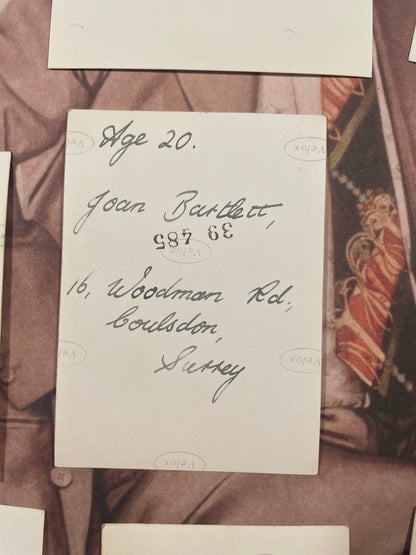 Age 20.
Velox
Velox
Joan Bartlett,
39 485
Velox
16, Woodman Rd.,
Coulsdon,
Velox
Velox
Surrey
Velox